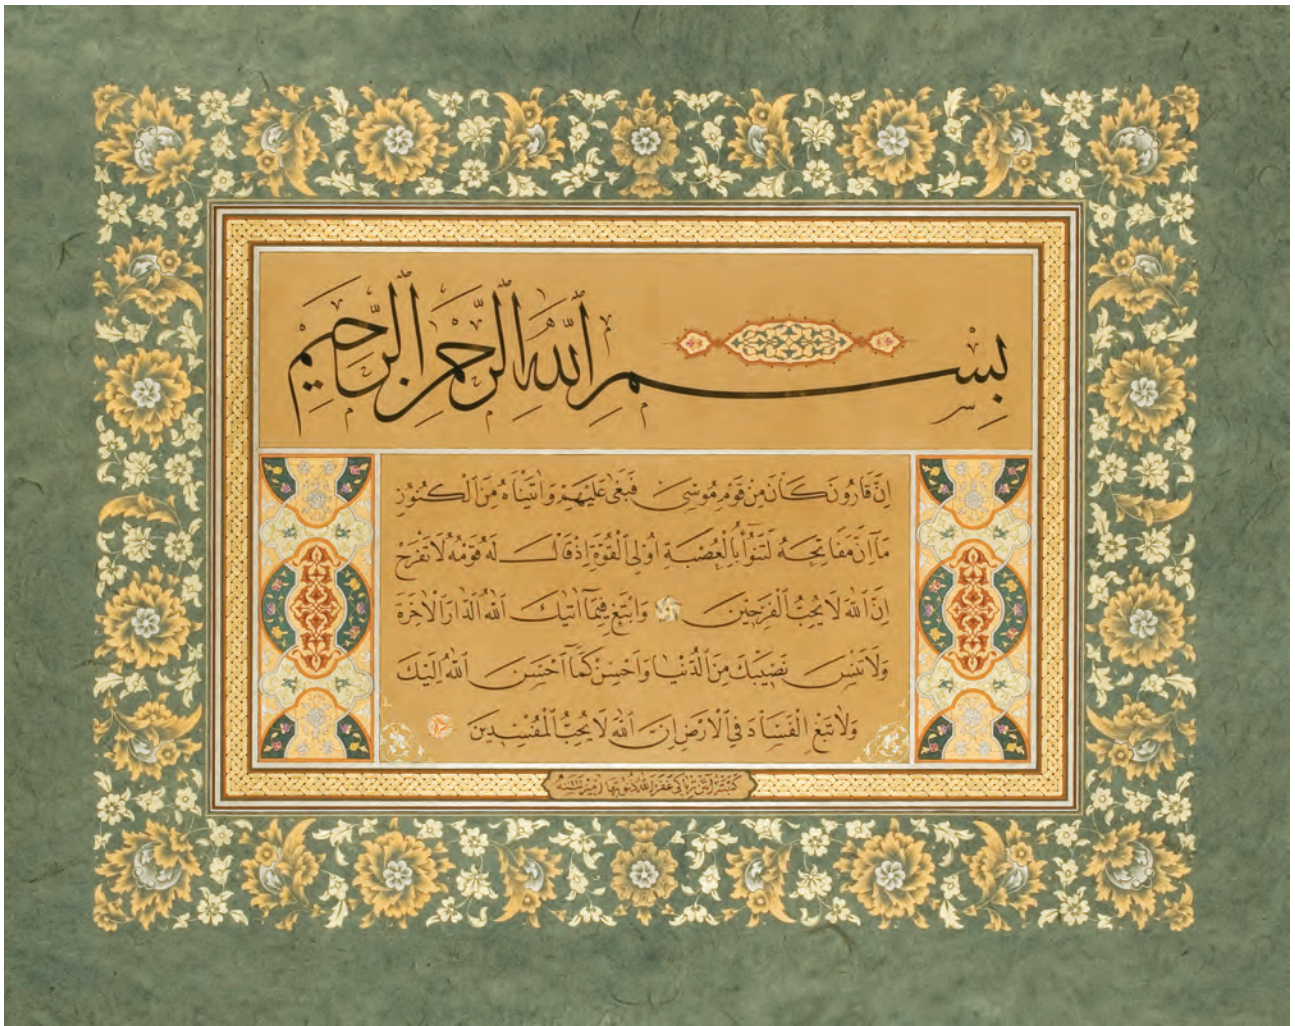 بِسْمِ اللّٰهِ الرَّحْمٰنِ الرَّحِيمِ
اِنَّ قَارُونَ كَانَ مِنْ قَوْمِ مُوسٰى فَبَغٰى عَلَيْهِمْ وَاٰتَيْنَاهُ مِنَ الْكُنُوزِ
مَٓا اِنَّ مَفَاتِحَهُ لَتَنُٓوأُ بِالْعُصْبَةِ اُولِي الْقُوَّةِ اِذْ قَالَ لَهُ قَوْمُهُ لَا تَفْرَحْ
اِنَّ اللّٰهَ لَا يُحِبُّ الْفَرِحِينَ وَابْتَغِ فِيمَٓا اٰتٰيكَ اللّٰهُ الدَّارَ الْاٰخِرَةَ
وَلَا تَنْسَ نَصِيبَكَ مِنَ الدُّنْيَا وَاَحْسِنْ كَمَٓا اَحْسَنَ اللّٰهُ اِلَيْكَ
وَلَا تَبْغِ الْفَسَادَ فِي الْاَرْضِ اِنَّ اللّٰهَ لَا يُحِبُّ الْمُفْسِدِينَ
غفر الله ذنوبها